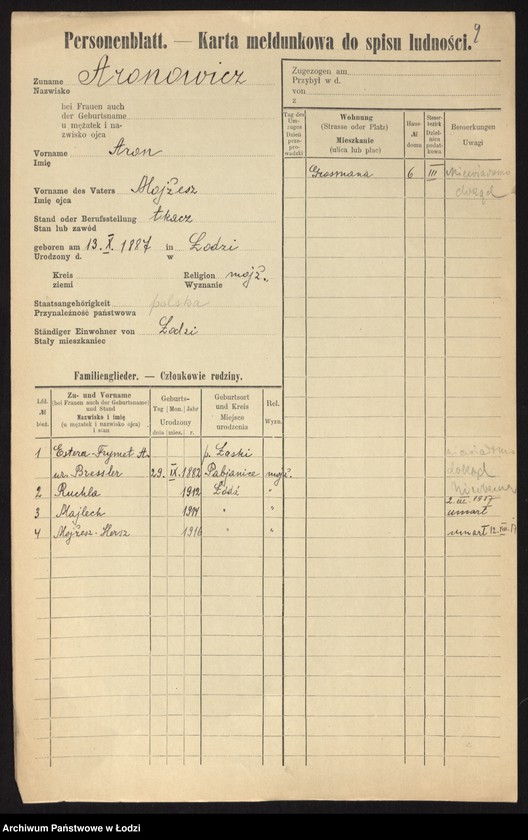 9
Personenblatt. — Karta meldunkowa do spisu ludności.
Zuname
Nazwisko Aronowicz
bei Frauen auch
der Geburtsname
u mężatek i na-
zwisko ojca
Vorname Aron
Imię
Vorname des Vaters Mojżesz
Imię ojca
Stand oder Berufsstellung tkacz
Stan lub zawód
geboren am 13. X. 1887 in Łodzi
Urodzony d. w
Kreis Religion mojż.
ziemi Wyznanie
Staatsangehörigkeit polska
Przynależność państwowa
Ständiger Einwohner von Łodzi
Stały mieszkaniec
Zugezogen am
Przybył w d.
von
z
Tag des Um-zuges Dzień prze-pro-wadzki
Wohnung
(Strasse oder Platz)
Mieszkanie
(ulica lub plac)
Haus- № domu
Steuer-bezirk Dzielnica podatkowa
Bemerkungen
Uwagi
Grosmana 6 III
Familienglieder. — Członkowie rodziny.
Lfd. № bież.
Zu- und Vorname
(bei Frauen auch der Geburtsname)
und Stand
Nazwisko i imię
(u mężatek i nazwisko ojca)
i stan
Geburts-
Tag Mon. Jahr
Urodzony
dnia mies. r.
Geburtsort
und Kreis
Miejsce
urodzenia
Rel.
Wyzn.
1 Estera-Frymet A. p. Łaski
ur. Bressler 29. IX. 1882 Pabjanice mojż.
2 Ruchla 1912 Łódź "
2. III. 1917
3 Majlech 1914 " " umarł
4 Mojżesz-Hersz 1916 " " umarł 12. VIII. 17
Archiwum Państwowe w Łodzi